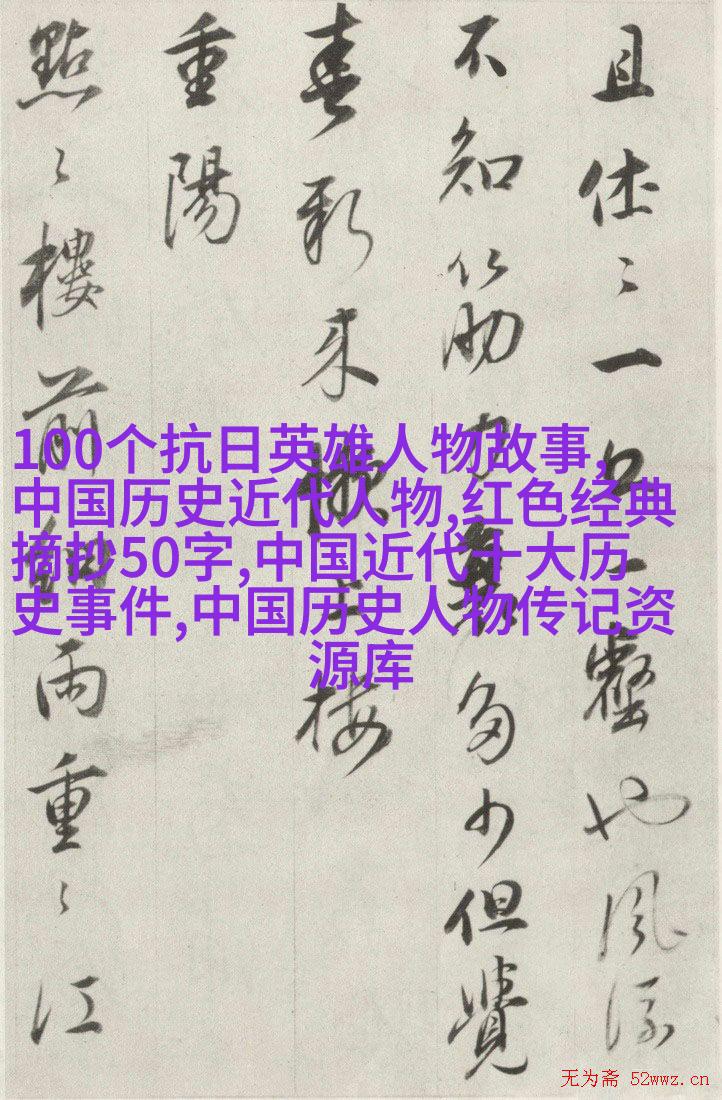 且休〻一丘一壑也風流
不知筋力衰多少但覺
春新来懶上楼
重陽
點〻樓前細雨重〻江
100个抗日英雄人物故事,
中国历史近代人物,红色经典
摘抄50字,中国近代十大历
史事件,中国历史人物传记资
源库
无为斋 52wwz.cn